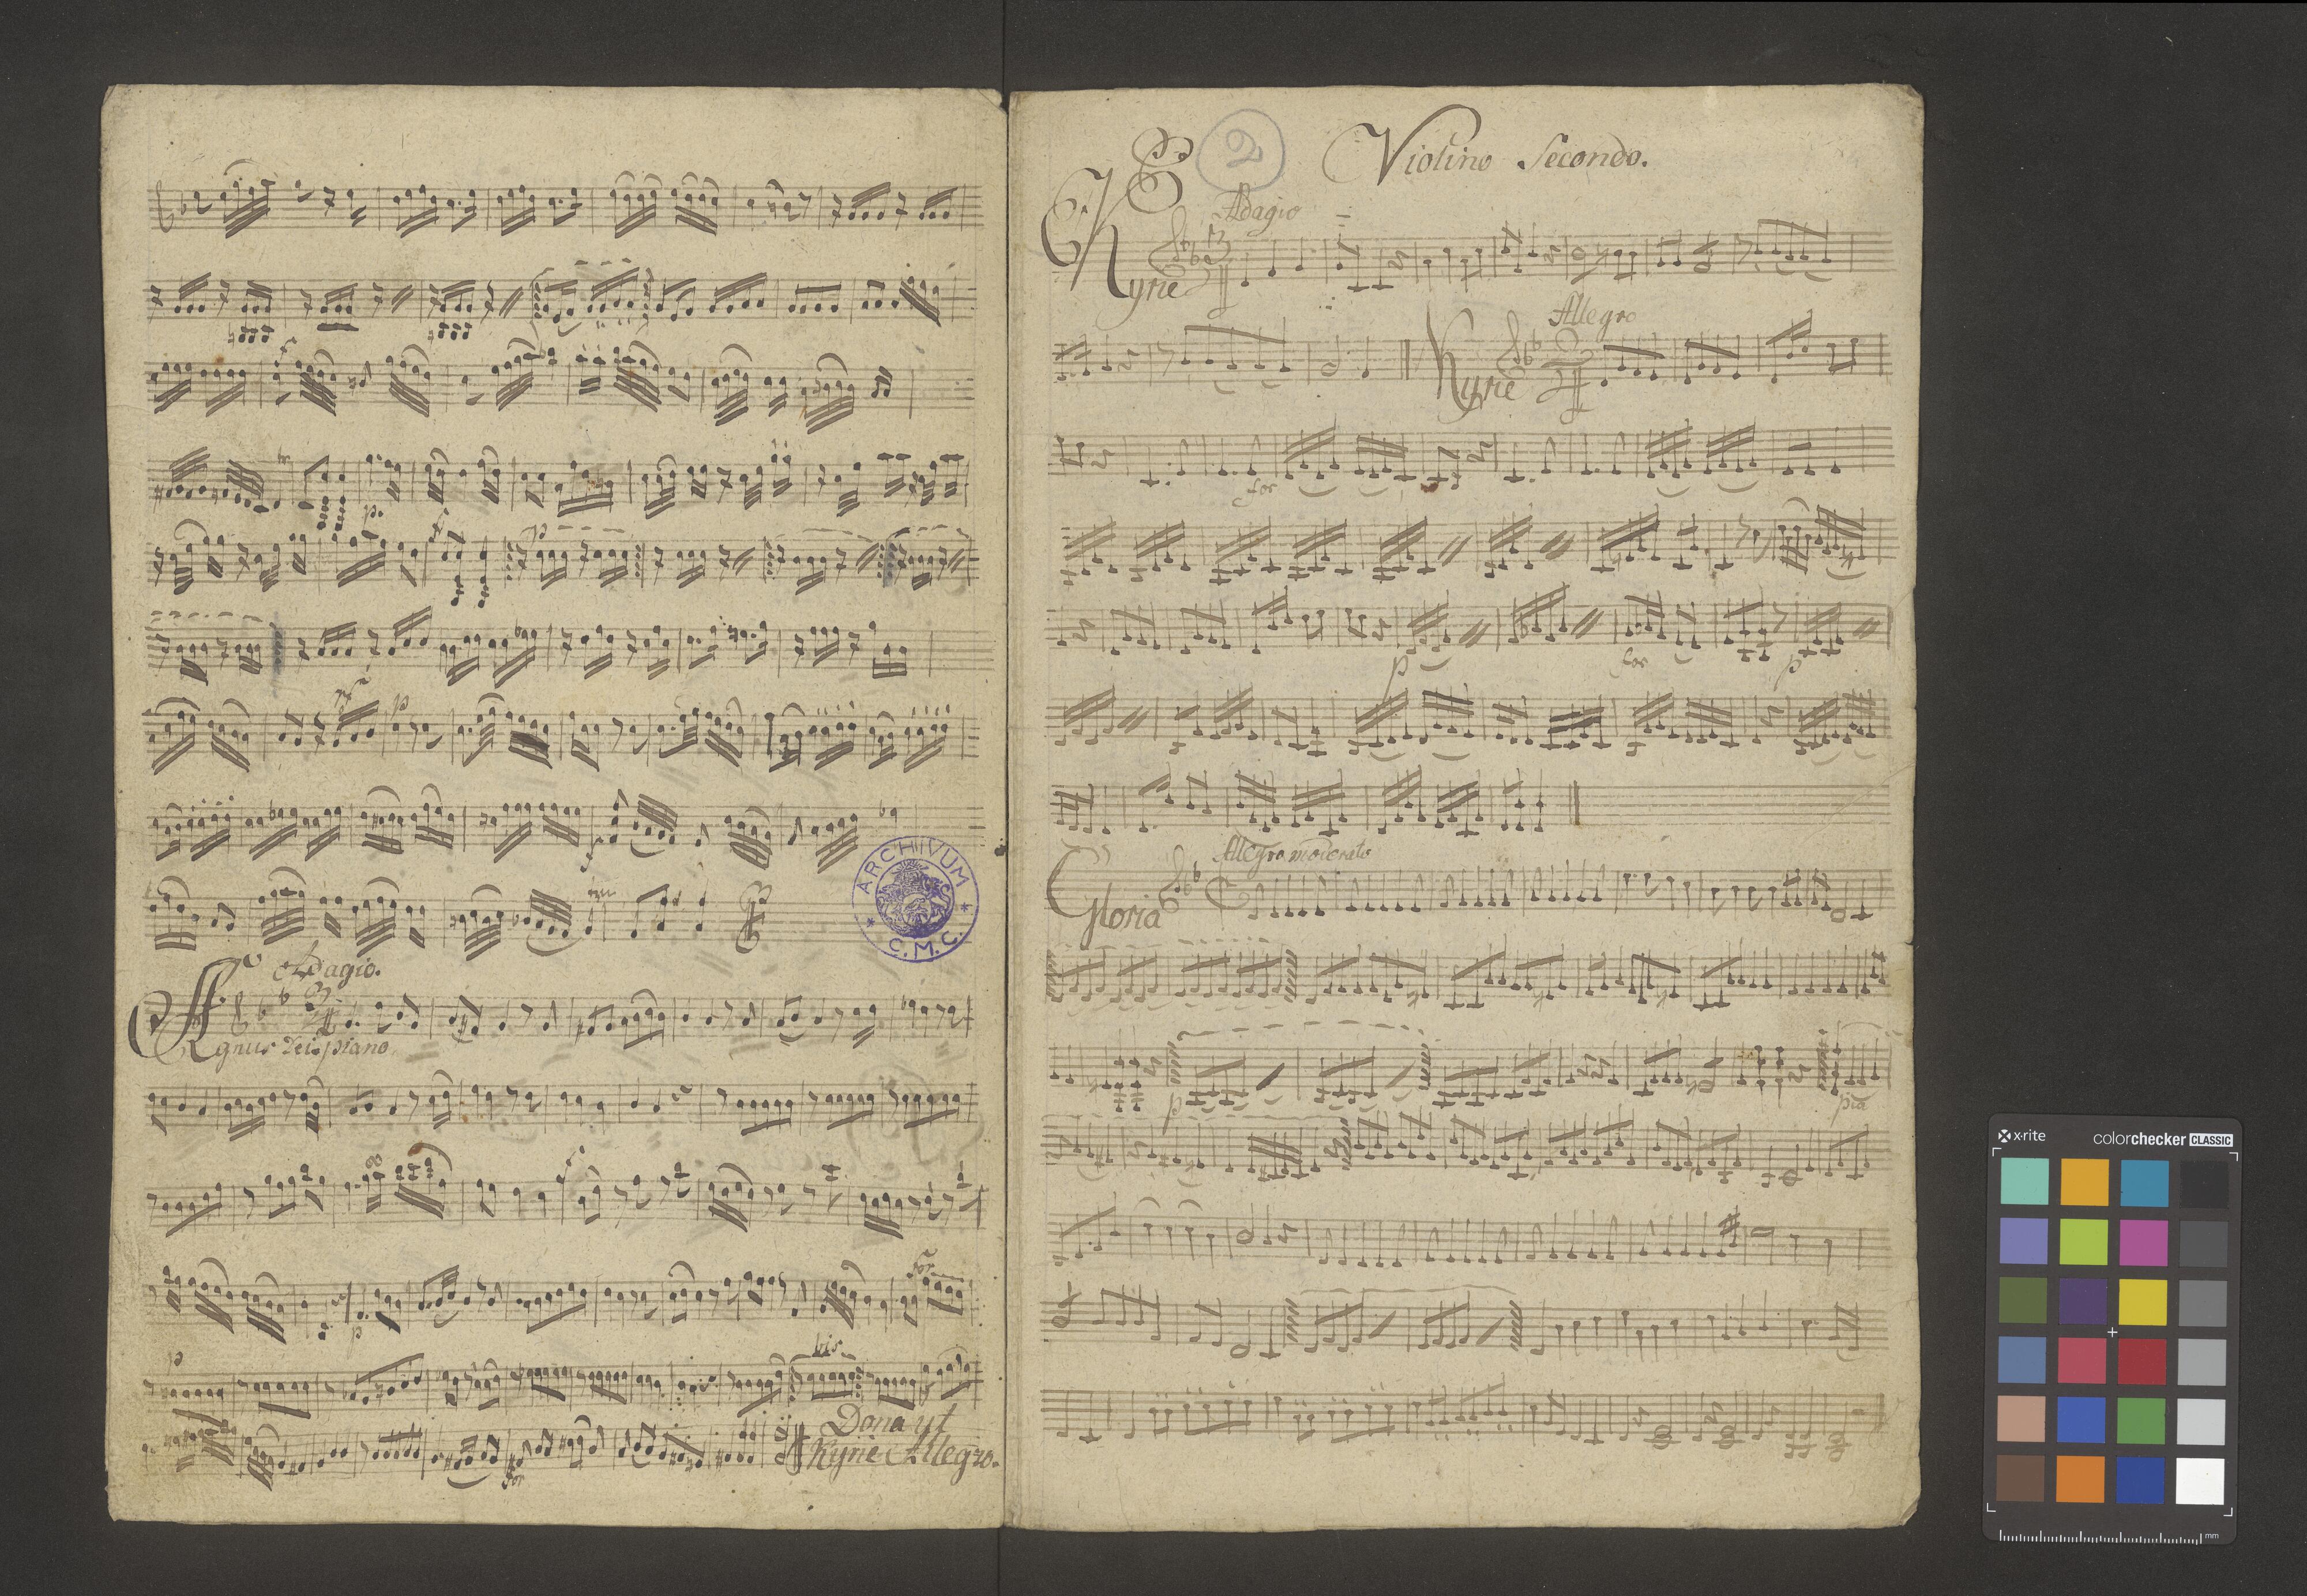 f
p.
f
p
p
f
tr
Adagio.
Agnus Dei piano
f
for
p
p
bis
Dona ut
Kyrie Allegro.
for
ARCHIVUM
* C.M.C. *
2
Violino Secondo.
Adagio
Kyrie
Allegro
Kyrie
for
p
for
p
Allegro moderato
Gloria
p
pia
x-rite
colorchecker CLASSIC
mm